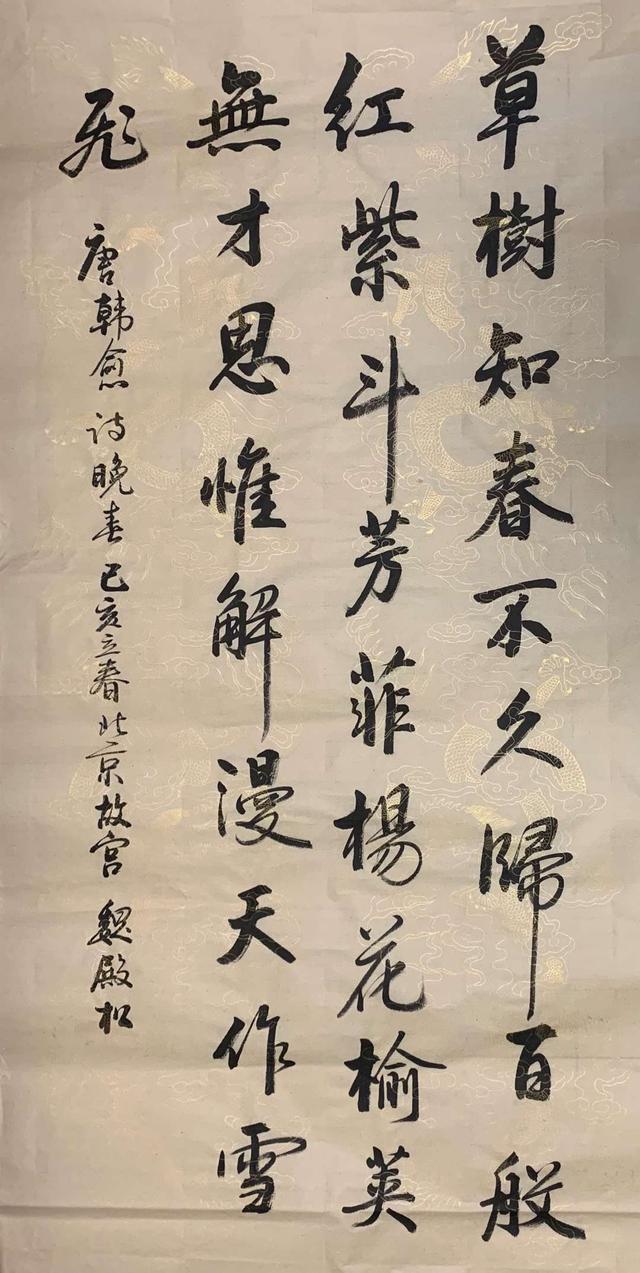 草樹知春不久歸百般
红紫斗芳菲楊花榆荚
無才思惟解漫天作雪
飛 唐韩愈诗晚春己亥立春北京故宫 魏殿松